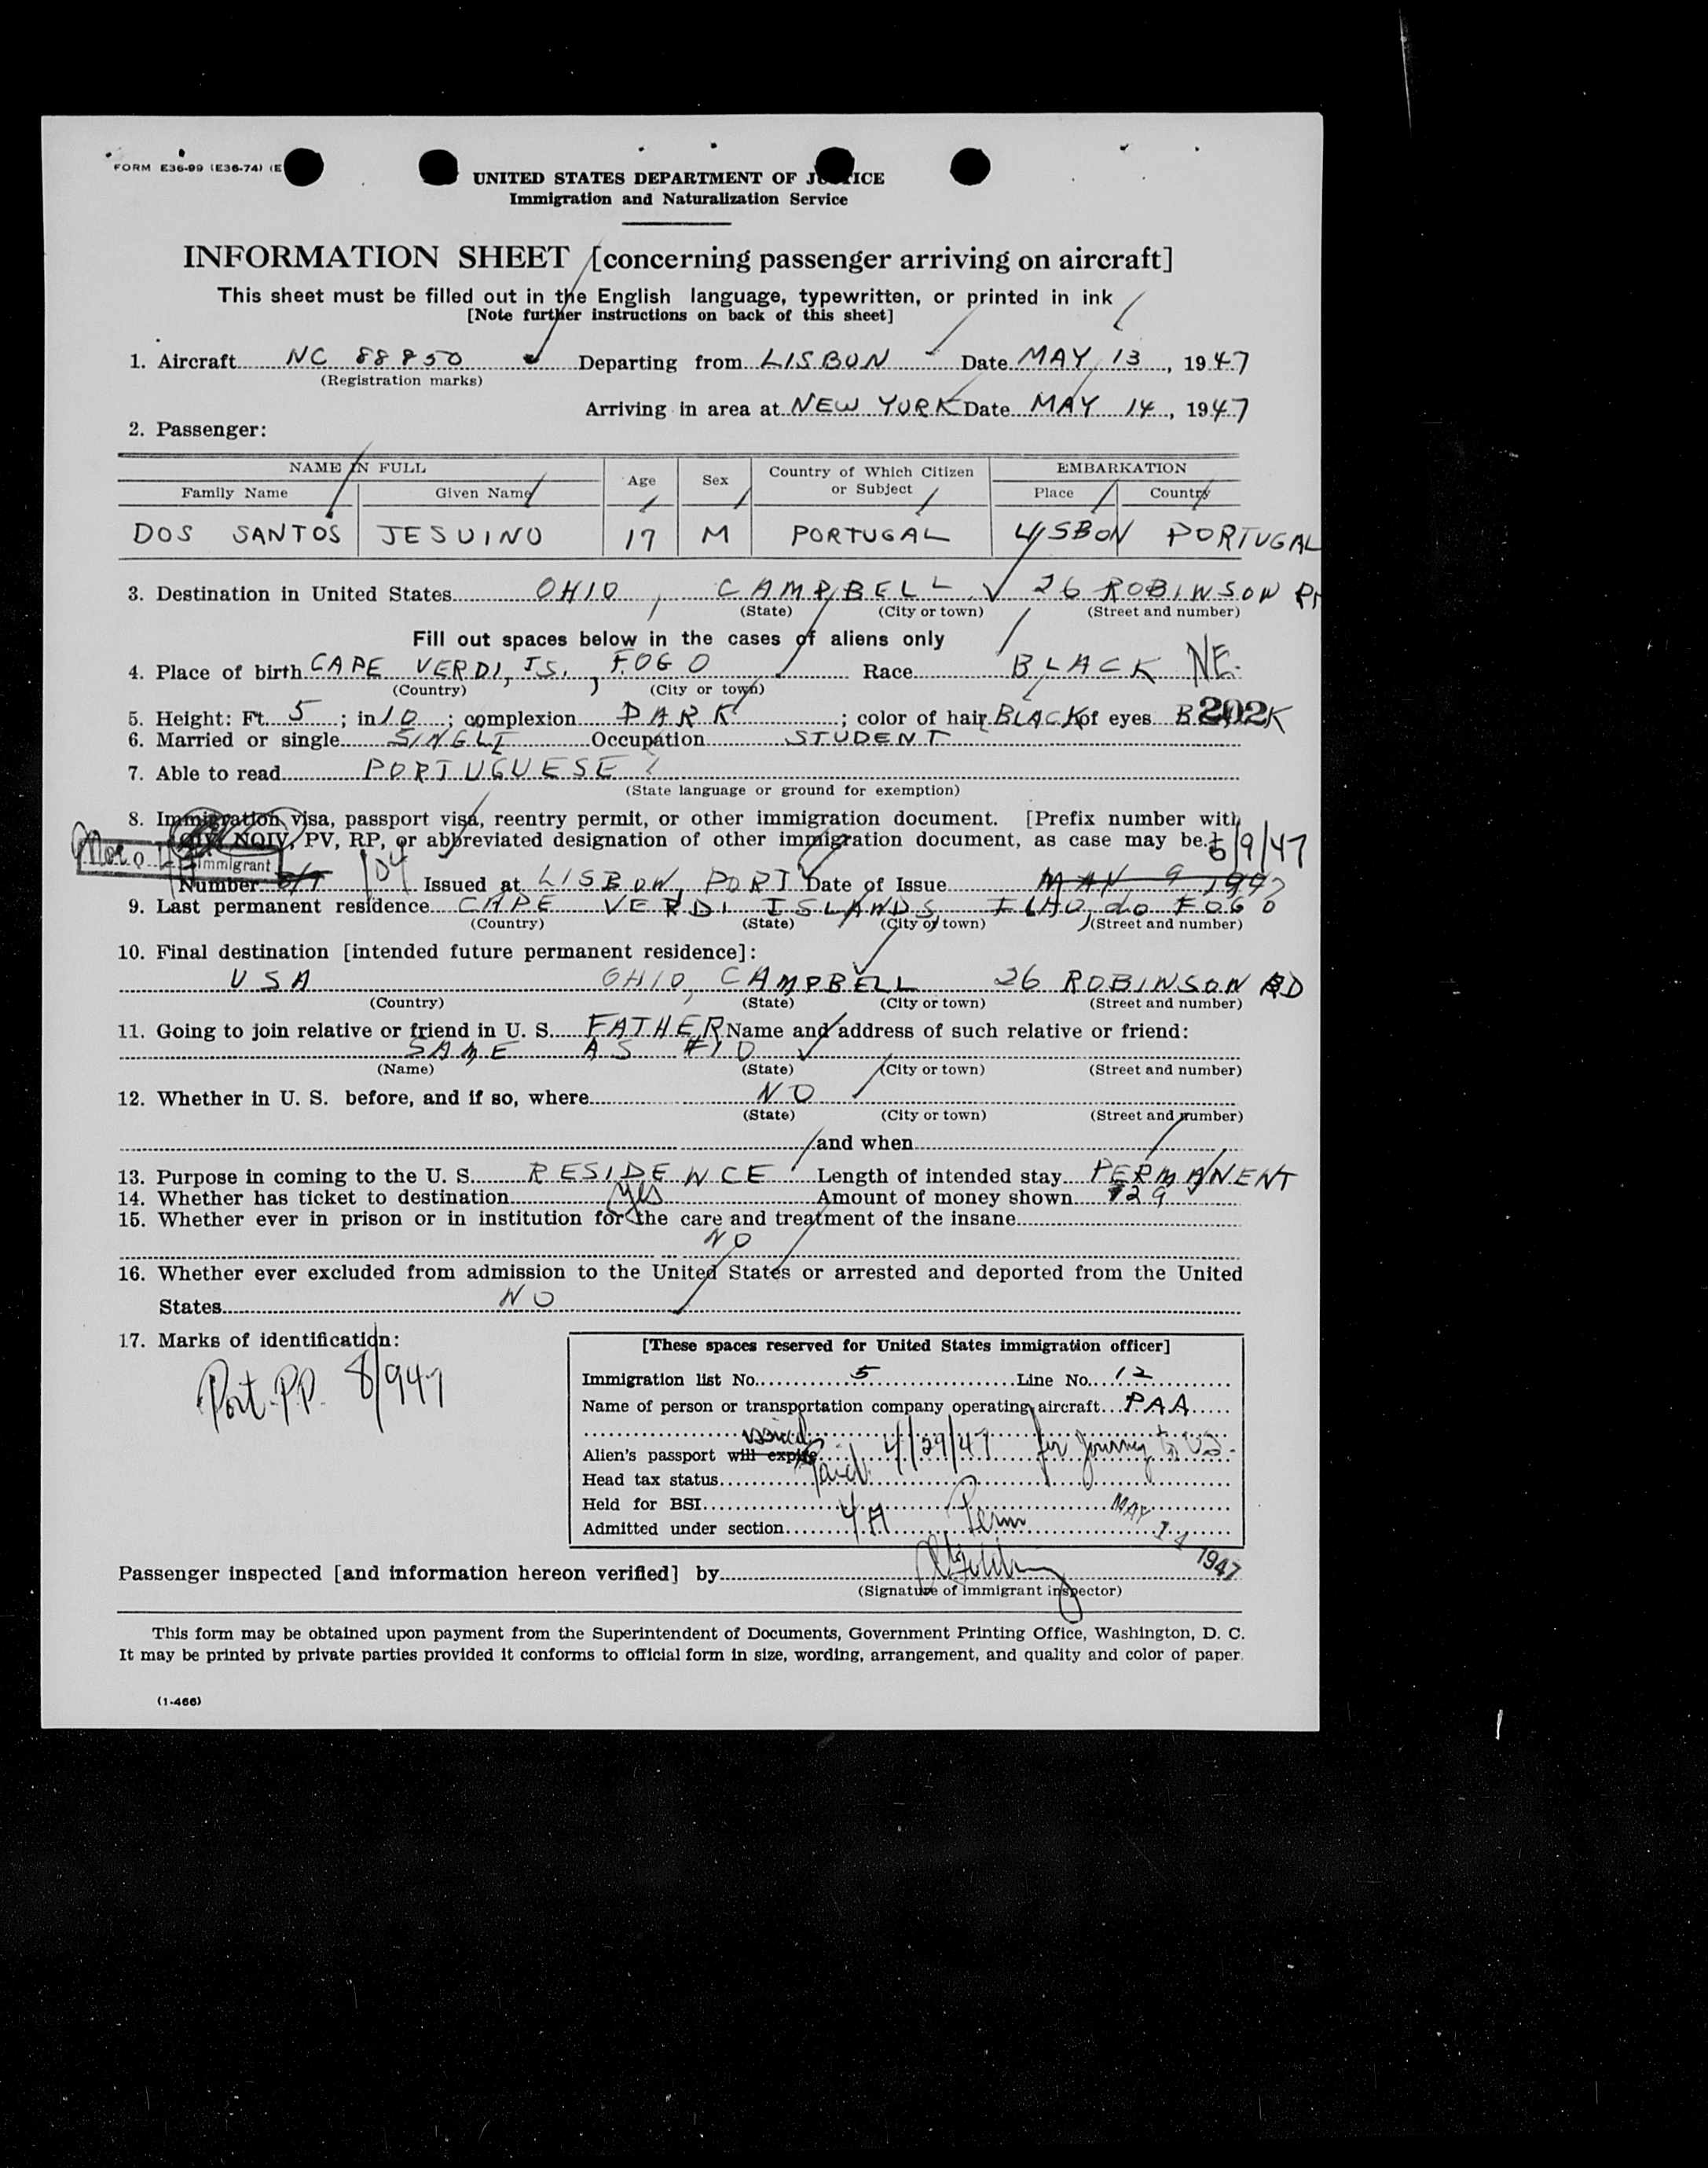 FORM E36-99 (E36-74) (E
UNITED STATES DEPARTMENT OF JUSTICE
Immigration and Naturalization Service
INFORMATION SHEET [concerning passenger arriving on aircraft]
This sheet must be filled out in the English language, typewritten, or printed in ink
[Note further instructions on back of this sheet]
1. Aircraft NC 88850 Departing from LISBON Date MAY 13, 1947
(Registration marks)
Arriving in area at NEW YORK Date MAY 14, 1947
2. Passenger:
NAME IN FULL Age Sex Country of Which Citizen or Subject EMBARKATION
Family Name Given Name Place Country
DOS SANTOS JESUINO 17 M PORTUGAL LISBON PORTUGAL
3. Destination in United States OHIO, CAMPBELL 26 ROBINSON
(State) (City or town) (Street and number)
Fill out spaces below in the cases of aliens only
4. Place of birth CAPE VERDI, IS., FOGO Race BLACK NE.
(Country) (City or town)
5. Height: Ft. 5; in 10; complexion DARK; color of hair BLACK of eyes B 202K
6. Married or single SINGLE Occupation STUDENT
7. Able to read PORTUGUESE
(State language or ground for exemption)
8. Immigration visa, passport visa, reentry permit, or other immigration document. [Prefix number with
QIV, NQIV, PV, RP, or abbreviated designation of other immigration document, as case may be.] 5/9/47
Immigrant
Number Issued at LISBON, PORT Date of Issue MAY 9 1947
9. Last permanent residence CAPE VERDI ISLANDS, ILHO do FOGO
(Country) (State) (City or town) (Street and number)
10. Final destination [intended future permanent residence]:
USA OHIO, CAMPBELL 26 ROBINSON RD
(Country) (State) (City or town) (Street and number)
11. Going to join relative or friend in U. S. FATHER Name and address of such relative or friend:
SAME AS #10
(Name) (State) (City or town) (Street and number)
12. Whether in U. S. before, and if so, where NO
(State) (City or town) (Street and number)
and when
13. Purpose in coming to the U. S. RESIDENCE Length of intended stay PERMANENT
14. Whether has ticket to destination yes Amount of money shown $29
15. Whether ever in prison or in institution for the care and treatment of the insane
NO
16. Whether ever excluded from admission to the United States or arrested and deported from the United
States NO
17. Marks of identification:
Port. P.P. 8/947
[These spaces reserved for United States immigration officer]
Immigration list No. 5 Line No. 12
Name of person or transportation company operating aircraft PAA
issued
Alien's passport will expire 4/29/47 for journey to US.
Head tax status paid
Held for BSI
Admitted under section 4A Perm MAY 14 1947
Passenger inspected [and information hereon verified] by
(Signature of immigrant inspector)
This form may be obtained upon payment from the Superintendent of Documents, Government Printing Office, Washington, D. C.
It may be printed by private parties provided it conforms to official form in size, wording, arrangement, and quality and color of paper.
(1-466)